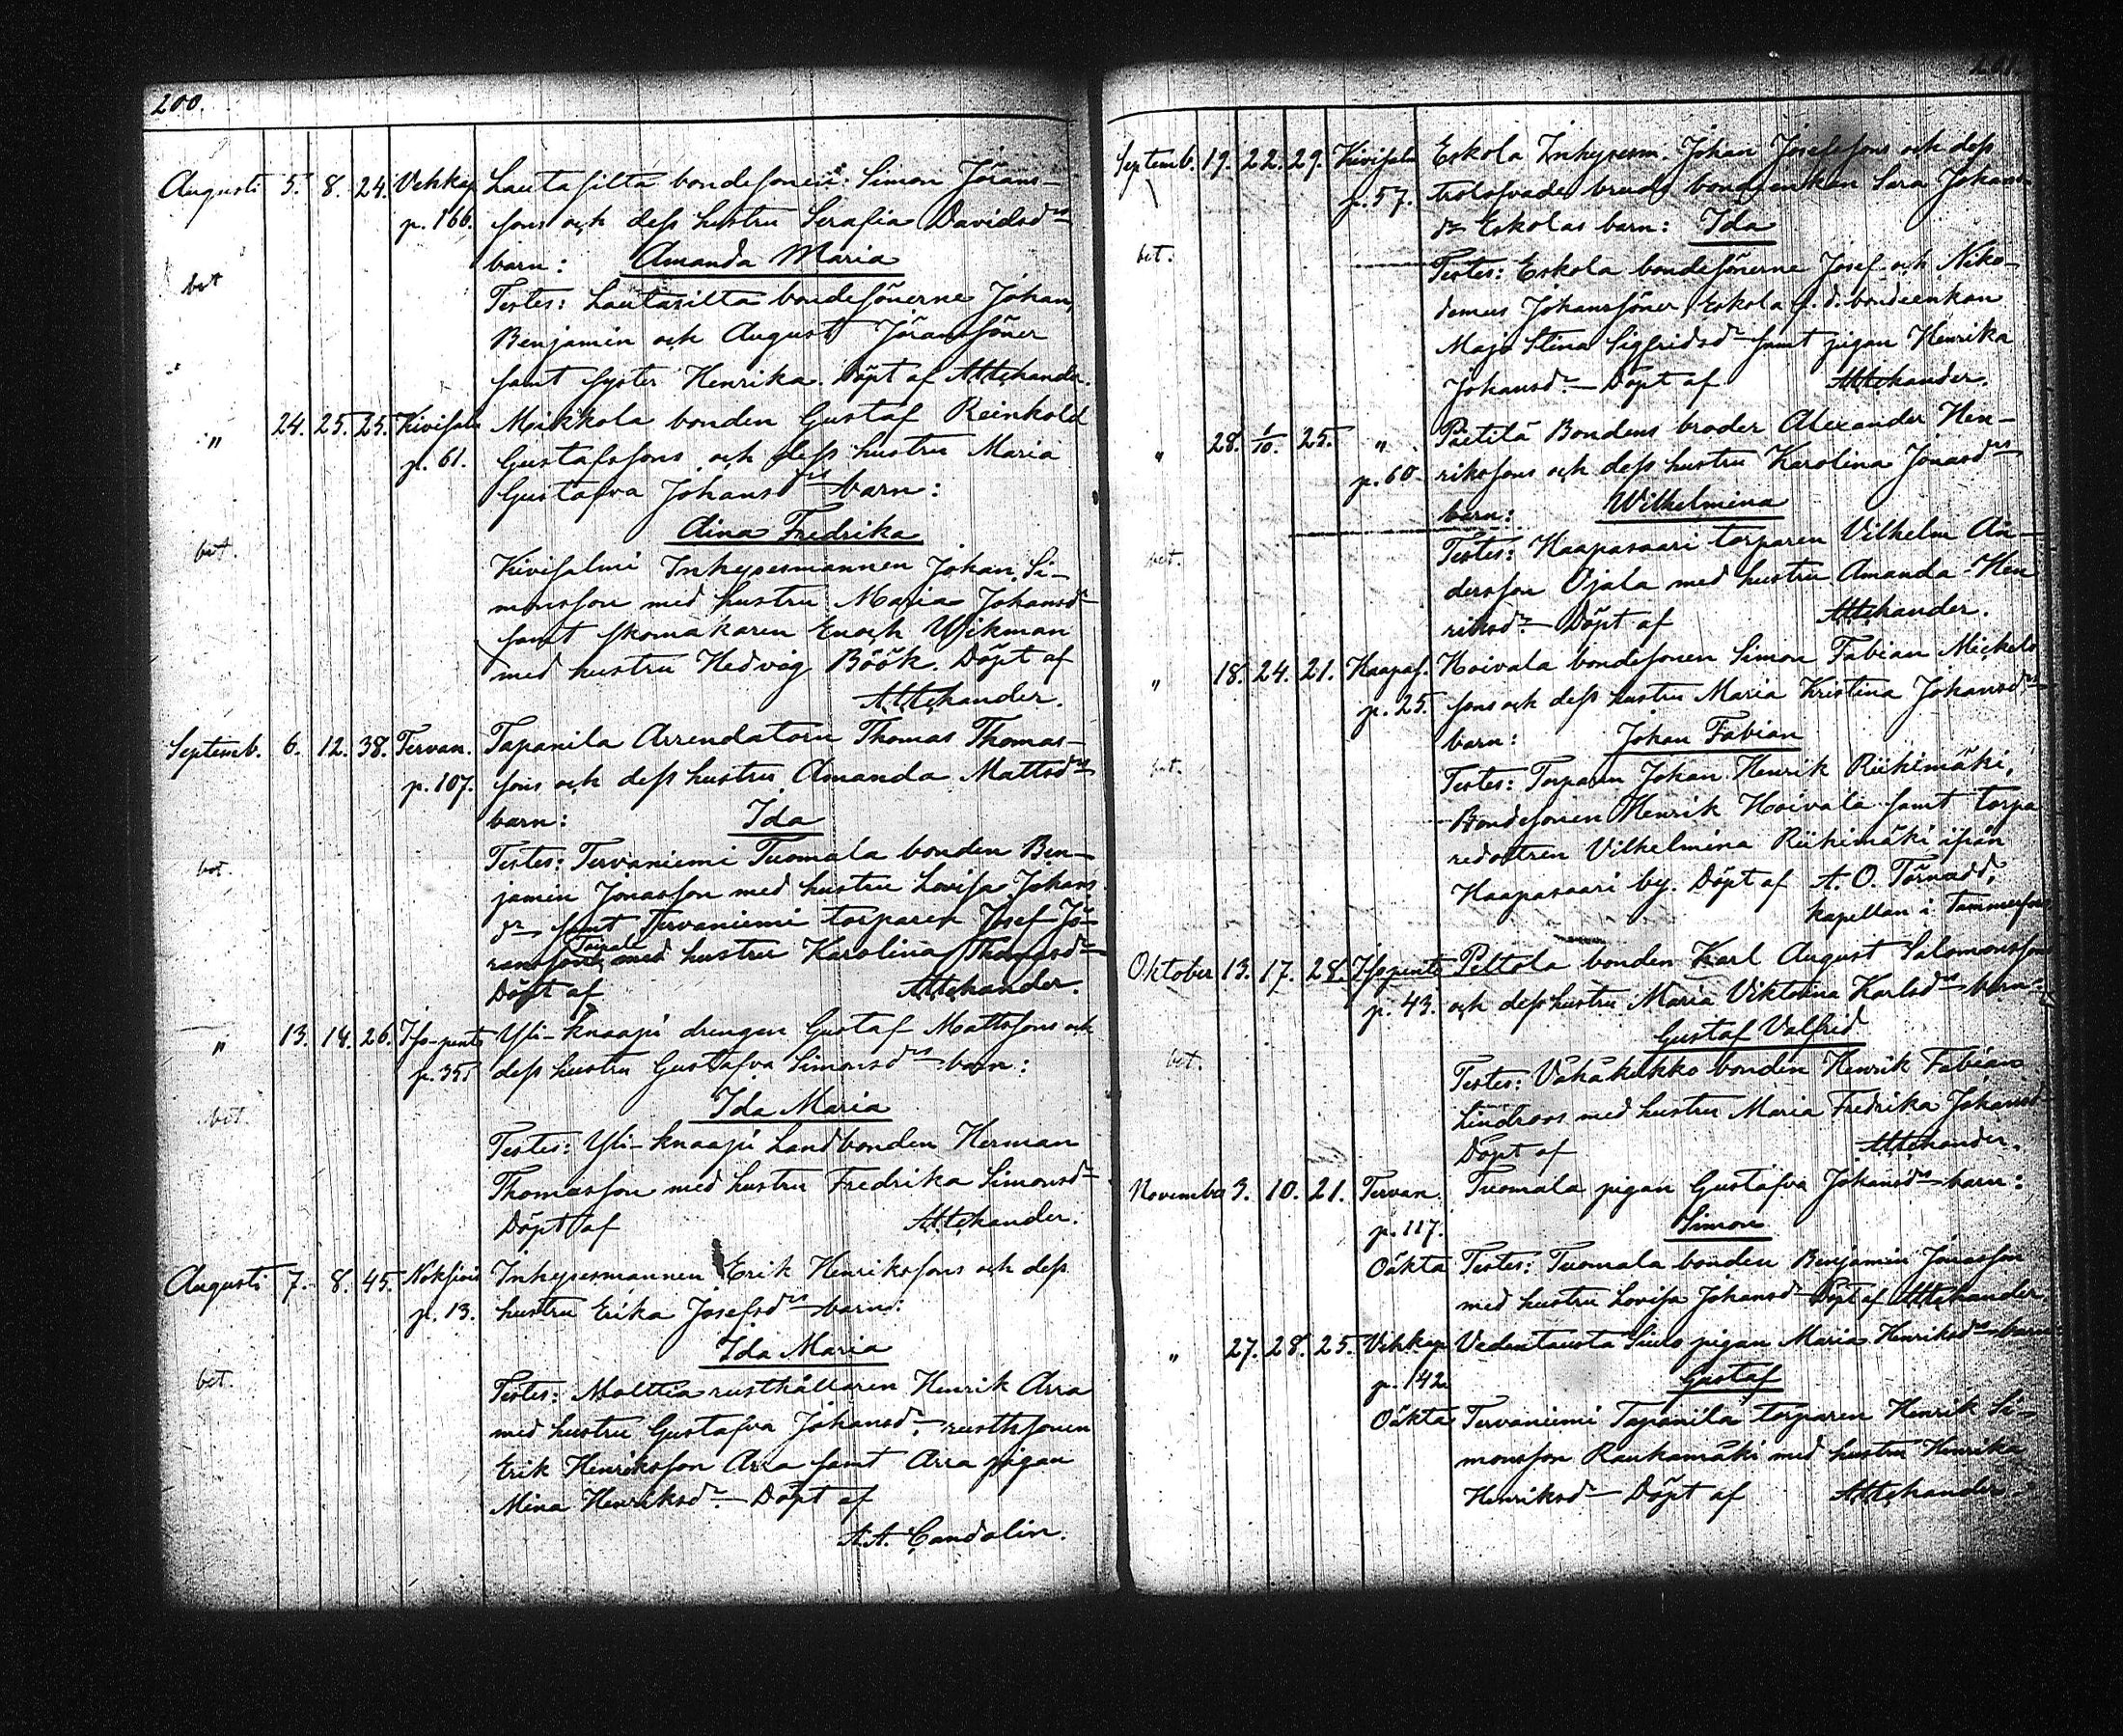 200.
Augusti 5. 8. 24. Vehkap. Lautasilta bondesonens: Simon Jörans-
p. 166. sons och dess hustru Serafia Davidsdrs
barn: Amanda Maria
bet Testes: Lautasilta bondesönerne Johan,
Benjamin och August Jöranssöner
samt syster Henrika. Döpt af
" 24. 25. 25. Kivisalm Moikkola bonden Gustaf Reinhold
p. 61. Gustafssons och dess hustru Maria
Gustafva Johansdrs barn:
Aina Fredrika
bet. Kivisalmi Inhysesmannen Johan Si-
monsson med hustru Maria Johansdr
samt skomakaren Enoch Wikman
med hustru Hedvig Böök. Döpt af
Septemb. 6. 12. 38. Tervan. Tapanila Arrendatorn Thomas Thomas-
p. 107. sons och dess hustru Amanda Mattsdrs
barn: Ida
bet. Testes: Tervaniemi Tuomala bonden Ben-
jamin Jonasson med hustru Lovisa Johans
dr samt Tervaniemi torparen Josef Jö-
ransson med hustru Karolina Thomasdr
Döpt af
" 13. 14. 26. Iso-pents Yli-knaapi drengen Gustaf Mattssons och
p. 35. dess hustru Gustafva Simonsdrs barn:
Ida Maria
bet. Testes: Yli-knaapi Landbonden Herman
Thomasson med hustru Fredrika Simonsdr
Döpt af
Augusti 7. 8. 45. Noksions Inhysesmannen Erik Henrikssons och dess
p. 13. hustru Erika Josefsdrs barn:
Ida Maria
bet. Testes: Molttia rusthållaren Henrik Arra
med hustru Gustafva Johansdr. rusthsonen
Erik Henriksson Arra samt Arra pigan
Mina Henriksdr. Döpt af
A.A. Candolin.
201.
Septemb. 19. 22. 29. Kivisalm Eskola Inhysesm. Johan Josefssons och dess
p. 57. trolofvade brud bondeenkan Sara Johans-
dr Eskolas barn: Ida
bet. Testes: Eskola bondesönerne Josef och Niko-
demus Johanssöner, Eskola f. d. bondeenkan
Maja Stina Sigfridsdr samt pigan Henrika
Johansdr. Döpt af
" 28. 1/10. 25. " Pietilä Bondens broder Alexander Hen-
p. 60. rikssons och dess hustru Karolina Jonasdrs
barn: Wilhelmina
bet. Testes: Haapasaari torparen Vilhelm An-
dersson Ojala med hustru Amanda Hen
riksdr. Döpt af
" 18. 24. 21. Haapas. Hoivala bondesonen Simon Fabian Mickels
p. 25. sons och dess hustru Maria Kristina Johansdrs
barn: Johan Fabian
bet. Testes: Torparen Johan Henrik Riihimäki,
Bondesonen Henrik Hoivala samt torpa
redottren Vilhelmina Riihimäki ifrån
Haapasaari by. Döpt af A. O. Törnudd,
kapellan i Tammerfors
Oktober 13. 17. 28. Isopents Peltola bonden Karl August Salomonsson
p. 43. och dess hustru Maria Viktorina Karlsdrs barn:
Gustaf Valfrid
bet. Testes: Vähäkekko bonden Henrik Fabian
Lindroos med hustru Maria Fredrika Johansdr
Döpt af
November 3. 10. 21. Tervan. Tuomala pigan Gustafva Johansdrs barn:
p. 117. Simon
Oäkta Testes: Tuomala bonden Benjamin Jonasson
med hustru Lovisa Johansdr Döpt af
" 27. 28. 25. Vehkap Vedentausta pigan Maria Henriksdrs barn:
p. 142. Gustaf
Oäkta Tervaniemi Tapanila torparen Henrik Si-
monsson Raukamäki med hustru Henrika
Henriksdr Döpt af